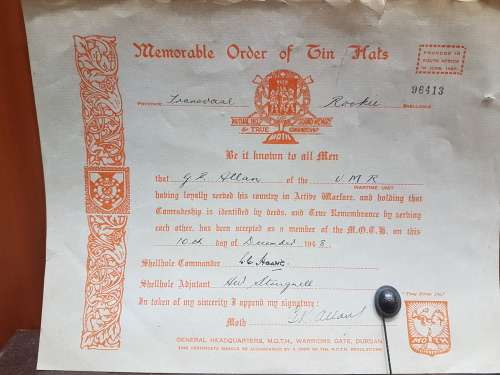 Memorable Order of Tin Hats
FOUNDED IN
SOUTH AFRICA
96413
PROVINCE Transvaal Rookie SHELLHOLE
MUTUAL HELP SOUND MEMORY
& TRUE COMRADESHIP
MOTH
Be it known to all Men
that G. E. Allan of the U M R
WARTIME UNIT
having loyally served his country in Active Warfare, and holding that
Comradeship is identified by deeds, and True Remembrance by serving
each other, has been accepted as a member of the M.O.T.H. on this
10th day of December 1948.
Shellhole Commander
Shellhole Adjutant
In token of my sincerity I append my signature:
Moth Allan
GENERAL HEADQUARTERS, M.O.T.H., WARRIORS GATE, DURBAN